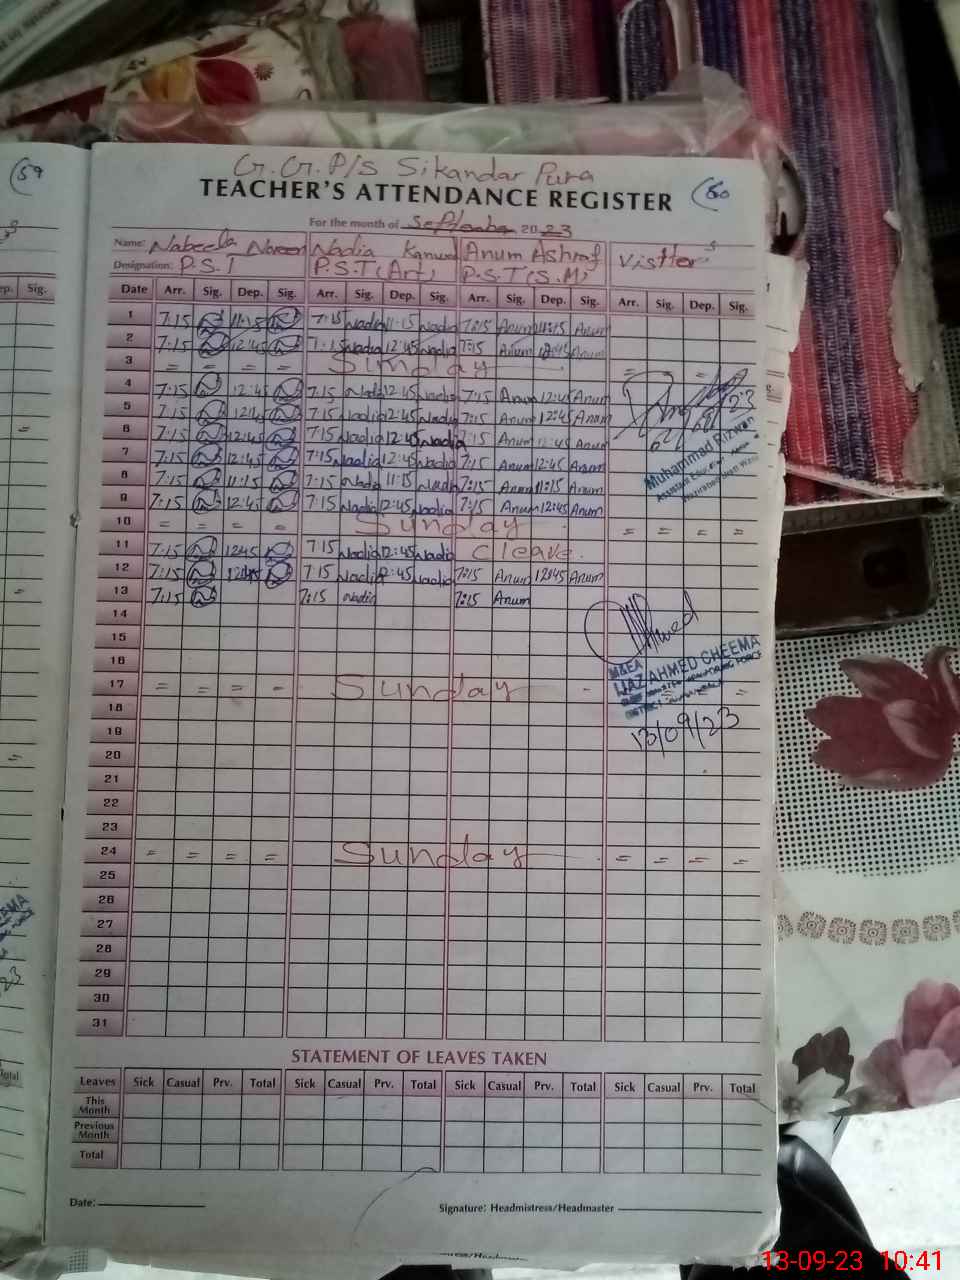 59
G.G.P/S Sikandar Pura
TEACHER'S ATTENDANCE REGISTER 60
For the month of September 2023
Name: Nabeela Noreen Nadia Kanwal Anum Ashraf Visttors
Designation: P.S.T P.S.T(Art) P.S.T(S.M)
Date Arr. Sig. Dep. Sig. Arr. Sig. Dep. Sig. Arr. Sig. Dep. Sig. Arr. Sig. Dep. Sig.
1 7:15 11:15 7:15 Nadia 11:15 Nadia 7:15 Anum 11:15 Anum
2 7:15 12:45 7:15 Nadia 12:45 Nadia 7:15 Anum 12:45 Anum
3 = = = = Sunday = =
4 7:15 12:45 7:15 Nadia 12:45 Nadia 7:15 Anum 12:45 Anum
5 7:15 7:15 Nadia 12:45 Nadia 7:15 Anum 12:45 Anum
6 7:15 12:45 7:15 Nadia 12:45 Nadia 7:15 Anum 12:45 Anum
7 7:15 12:45 7:15 Nadia 12:45 Nadia 7:15 Anum 12:45 Anum
8 7:15 11:15 7:15 Nadia 11:15 Nadia 7:15 Anum 11:15 Anum
9 7:15 12:45 7:15 Nadia 12:45 Nadia 7:15 Anum 12:45 Anum
Muhammad Rizwan
10 = = = = Sunday = = = =
11 7:15 12:45 7:15 Nadia 12:45 Nadia C leave.
12 7:15 12:45 7:15 Nadia 12:45 Nadia 7:15 Anum 12:45 Anum
13 7:15 7:15 Nadia 7:15 Anum
14
15
16
M&EA
IJAZ AHMED CHEEMA
17 = = = - Sunday - = =
18
13/09/23
19
20
21
22
23
24 = = = = Sunday = = = =
25
26
27
28
29
30
31
STATEMENT OF LEAVES TAKEN
Leaves Sick Casual Prv. Total Sick Casual Prv. Total Sick Casual Prv. Total Sick Casual Prv. Total
This Month
Previous Month
Total
Date:
Signature: Headmistress/Headmaster
13-09-23 10:41